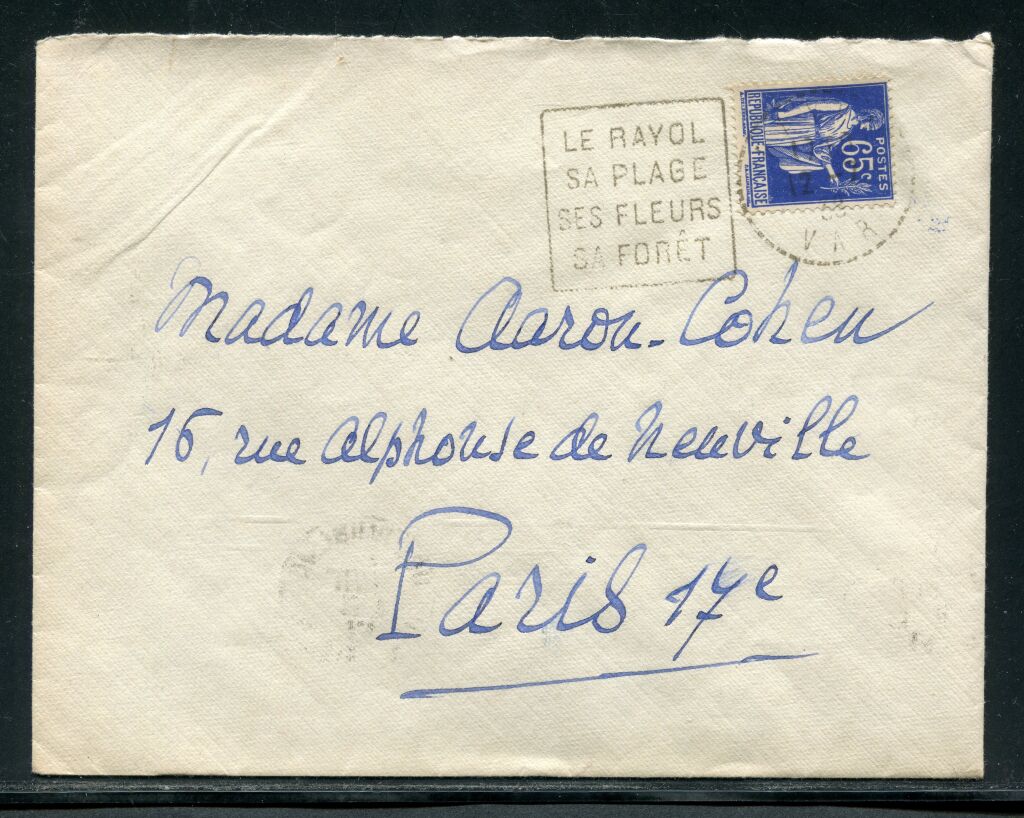 LE RAYOL
SA PLAGE
SES FLEURS
SA FORÊT
POSTES
65c
REPUBLIQUE-FRANÇAISE
VAR
Madame Aaron-Cohen
16, rue Alphonse de Neuville
Paris 17e